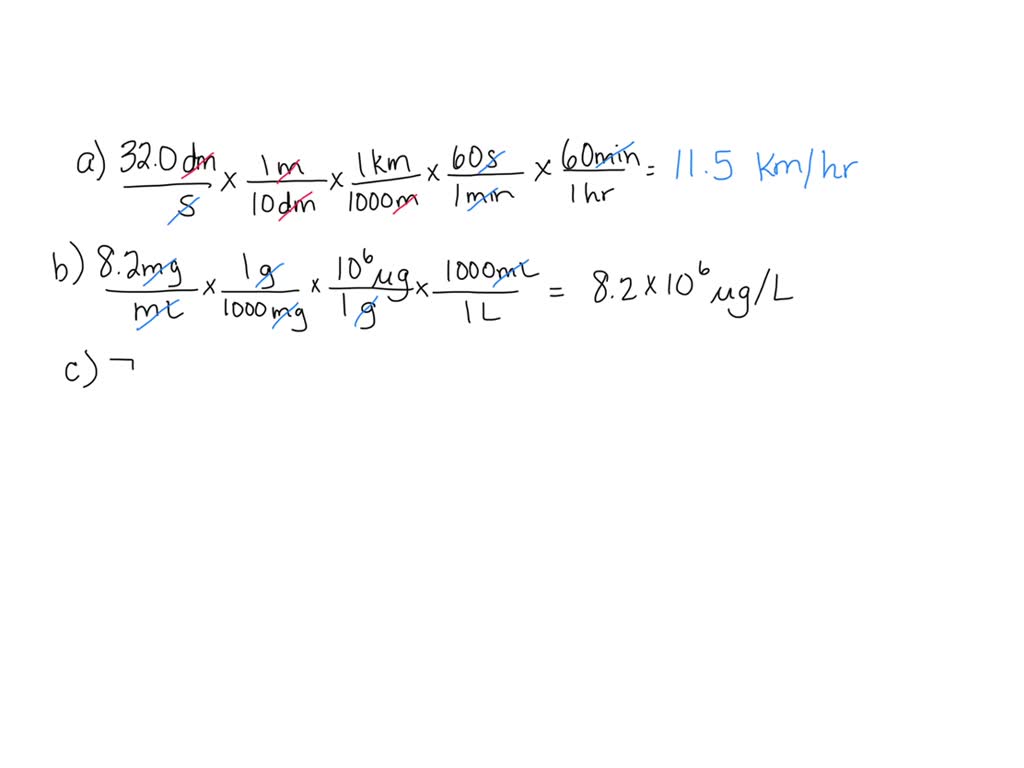 a) 32.0 dm/s × 1 m/10 dm × 1 km/1000 m × 60 s/1 min × 60 min/1 hr = 11.5 km/hr
b) 8.2 mg/mL × 1 g/1000 mg × 10⁶ μg/1 g × 1000 mL/1 L = 8.2 × 10⁶ μg/L
c)